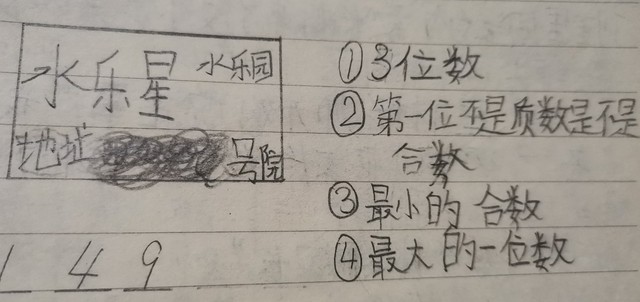 水乐星 水乐园
地址 号院
1 4 9
①3位数
②第一位不是质数是不是
合数
③最小的合数
④最大的一位数